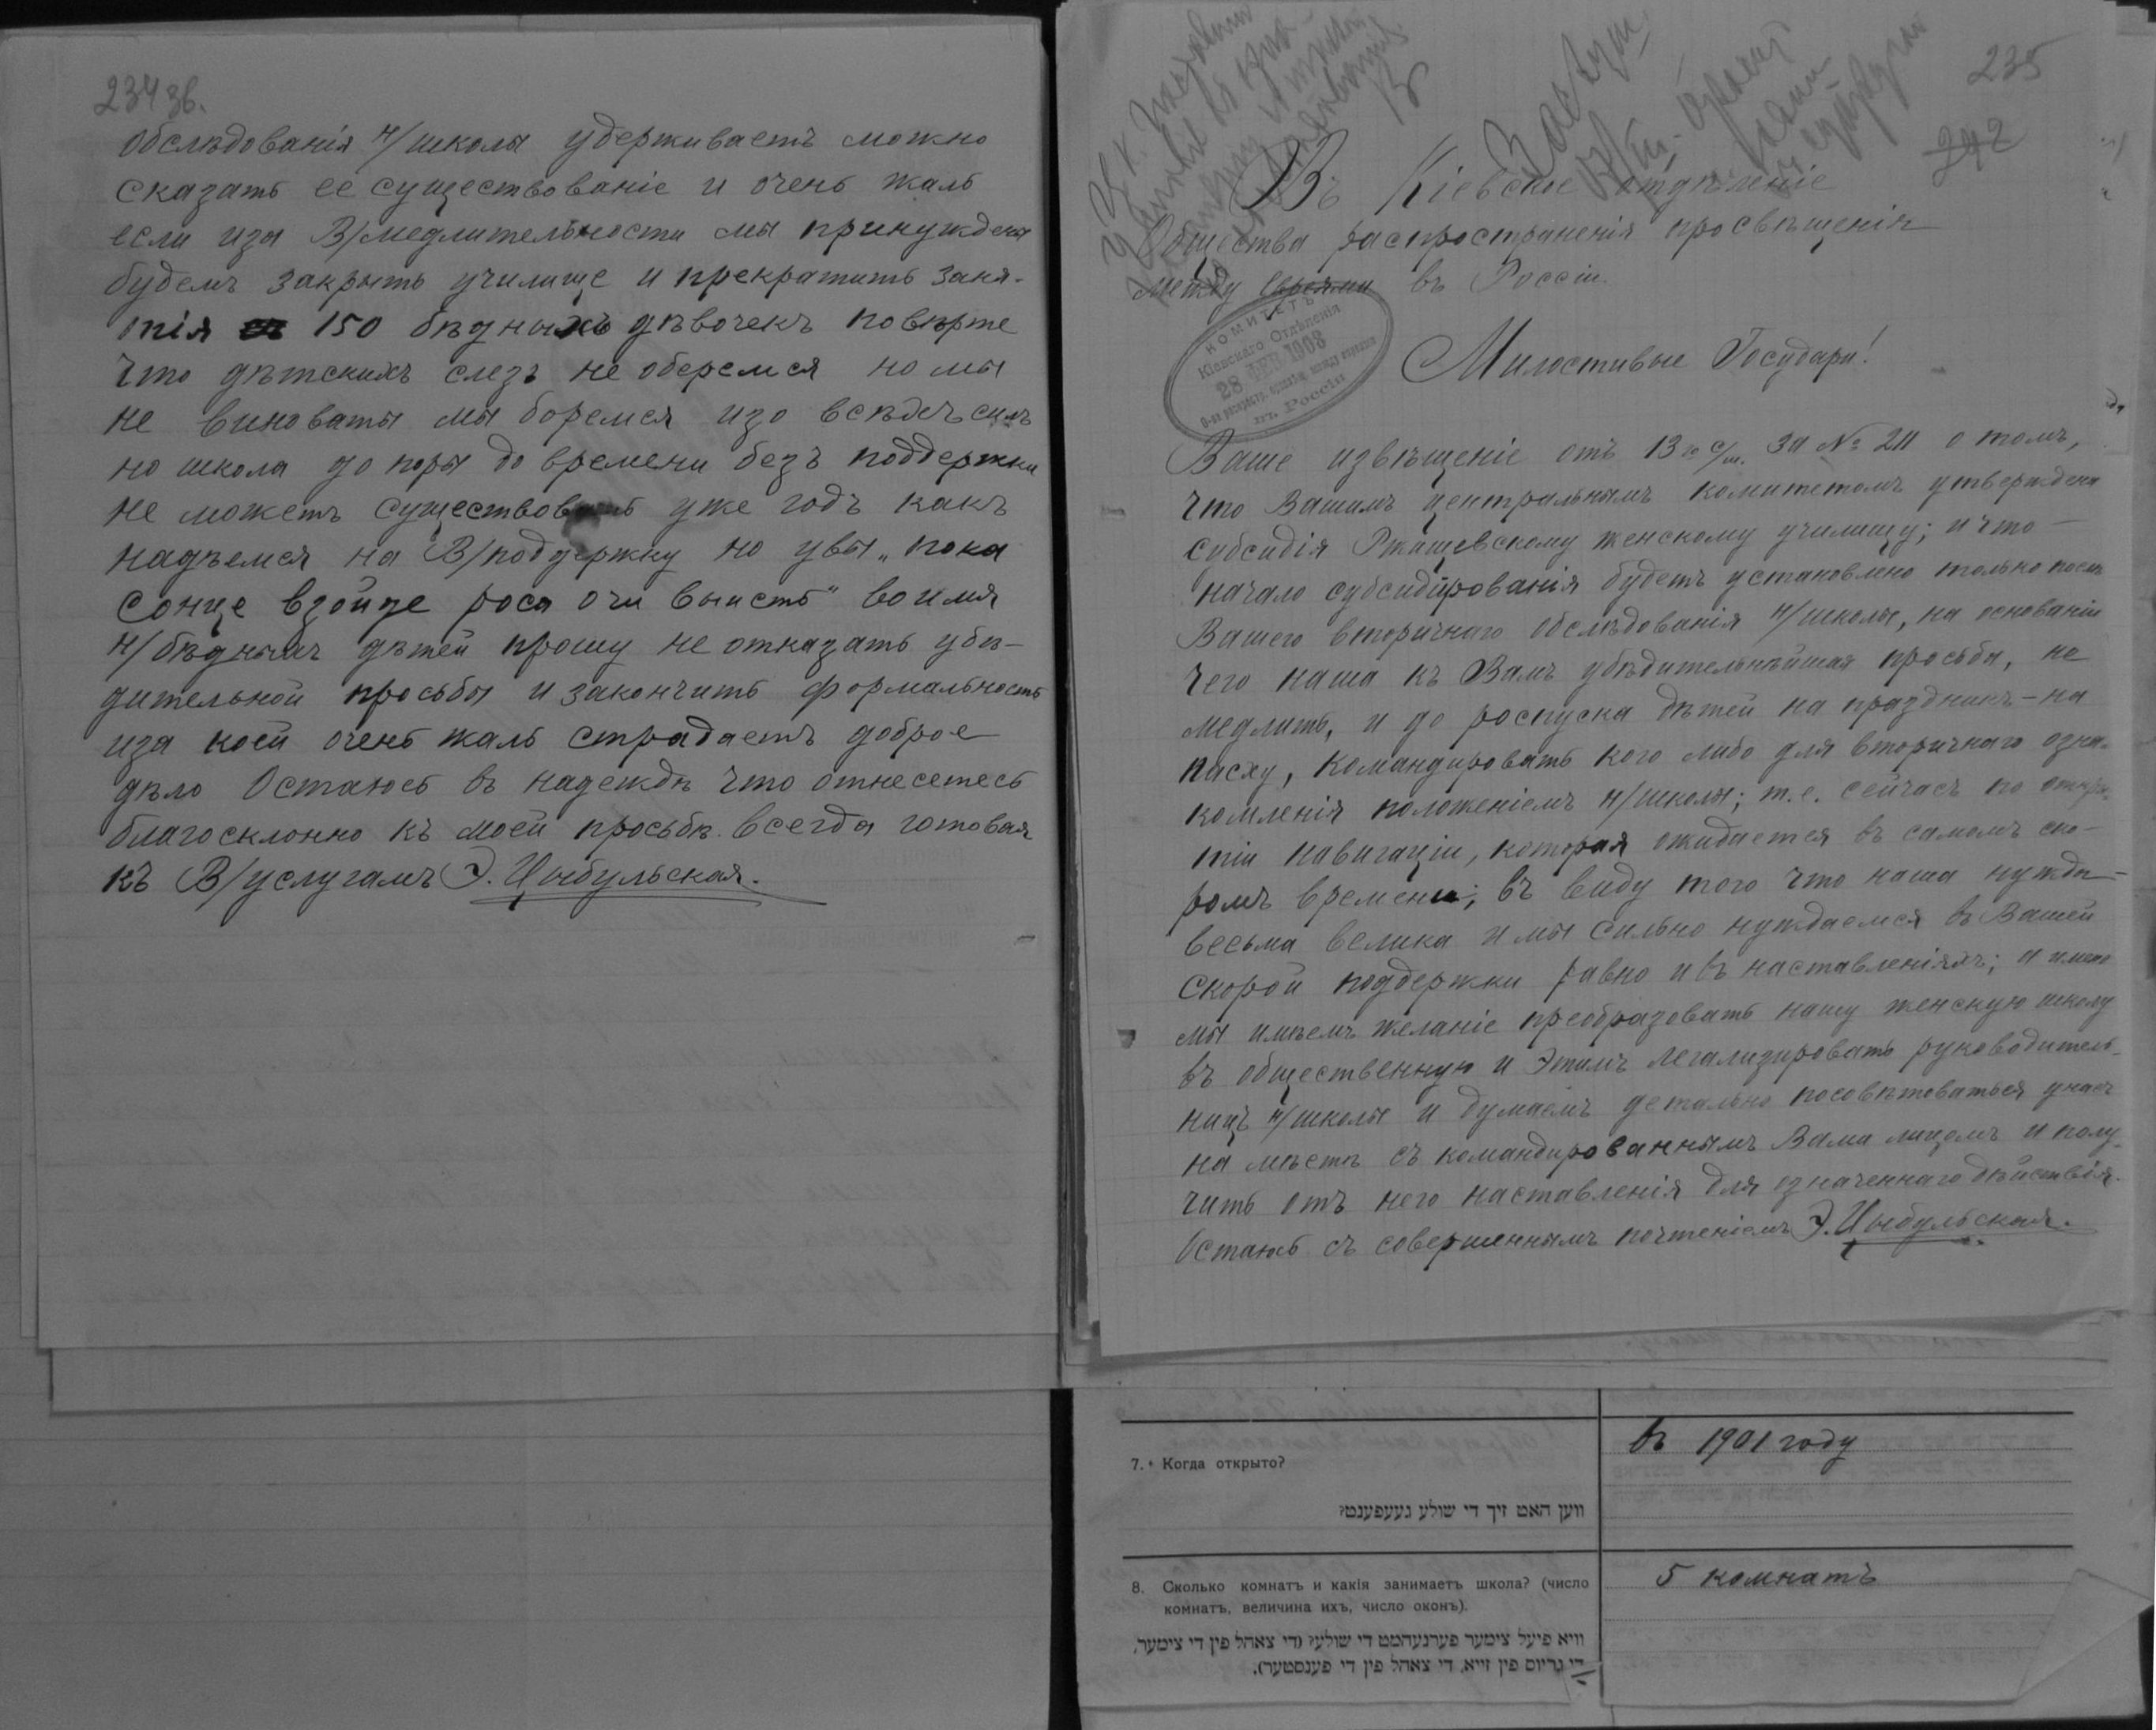 234 зв.
Обслѣдованія н/школы удерживаетъ можно
сказать ее существованіе и очень жаль
если изъ В/медлительности мы принуждены
будемъ закрыть училище и прекратить заня-
тія 150 бѣдныхъ дѣвочекъ повѣрте
что дѣтскихъ слезъ не оберемся но мы
не виноваты мы боремся изо всѣхъ силъ
но школа до поры до времени безъ поддержки
не можетъ существовать уже годъ какъ
надѣемся на В/поддержку но увы „пока
сонце взойде роса очи выистъ" во имя
н/бѣднымъ дѣтей прошу не отказать убѣ-
дительной просьбы и закончить формальность
изза коей очень жаль страдаетъ доброе
дѣло Остаюсь въ надеждѣ что отнесетесь
благосклонно къ моей просьбѣ. всегда готовая
къ В/услугамъ Э. Цыбульская.
235
242
Въ Кіевское отдѣленіе
Общества распространенія просвѣщенія
между Евреями въ Россіи.
КОМИТЕТЪ
Кіевскаго Отдѣленія
28 1908
въ Россіи
Милостивые Государи!
Ваше извѣщеніе отъ 13го с/м. за № 211 о томъ,
что Вашимъ центральнымъ комитетомъ утверждена
субсидія Ржищевскому женскому училищу; и что
начало субсидированія будетъ установлено только послѣ
Вашего вторичнаго обслѣдованія н/школы, на основаніи
чего наша къ Вамъ убѣдительнѣйшая просьба, не
медлить, и до роспуска дѣтей на праздникъ-на
пасху, командировать кого либо для вторичнаго озна-
комленія положеніемъ н/школы; т.е. сейчасъ по откры-
тіи навигаціи, которая ожидается въ самомъ ско-
ромъ времени; въ виду того что наша нужда
весьма велика и мы сильно нуждаемся въ Вашей
скорой поддержки равно и въ наставленіяхъ; а именно
мы имѣемъ желаніе преобразовать нашу женскую школу
въ общественную и этимъ легализировать руководитель-
ницъ н/школы и думаемъ детально посовѣтоваться у насъ
на мѣстѣ съ командированнымъ Вами лицомъ и полу-
чить отъ него наставленія для означеннаго дѣйствія.
Остаюсь съ совершеннымъ почтеніемъ Э. Цыбульская.
7. Когда открыто?
ווען האט זיך די שולע געעפענט?
въ 1901 году
8. Сколько комнатъ и какія занимаетъ школа? (число
комнатъ, величина ихъ, число оконъ).
וויא פיעל צימער פערנעהמט די שולע? (די צאהל פין די צימער,
די גרויס פין זייא, די צאהל פין די פענסטער).
5 комнатъ